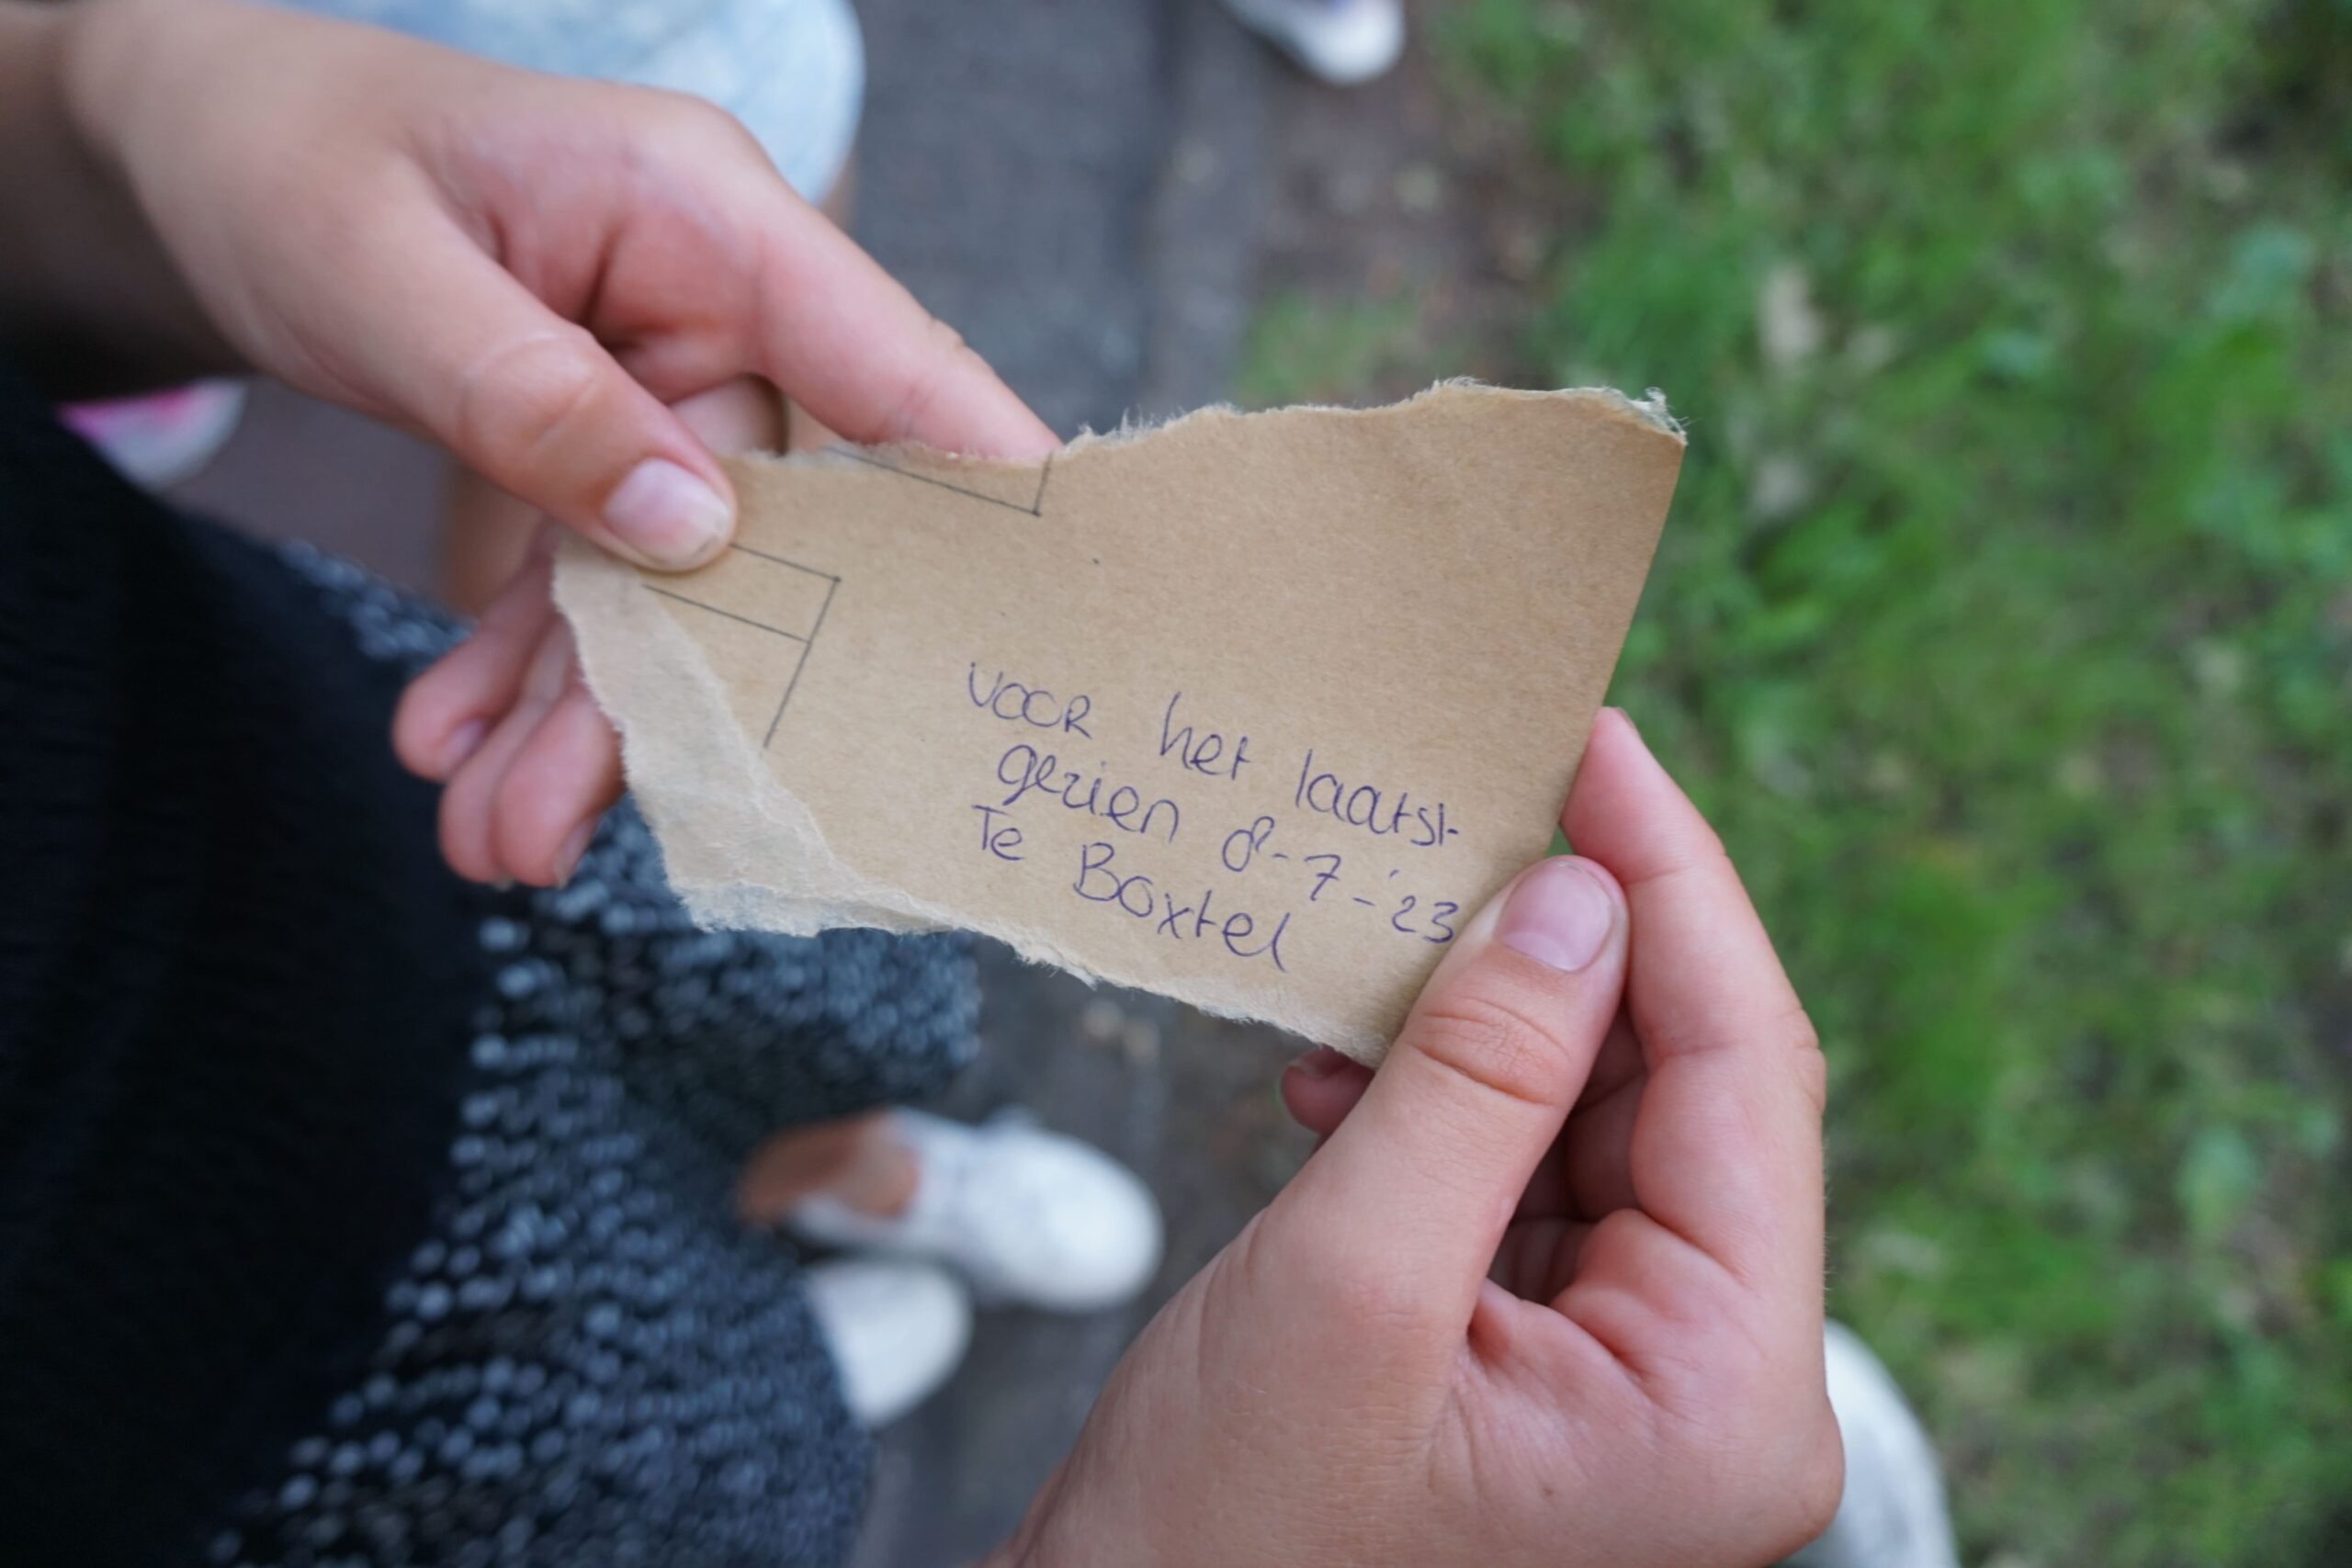 VOOR het laatst
gezien 8-7-'23
Te Boxtel